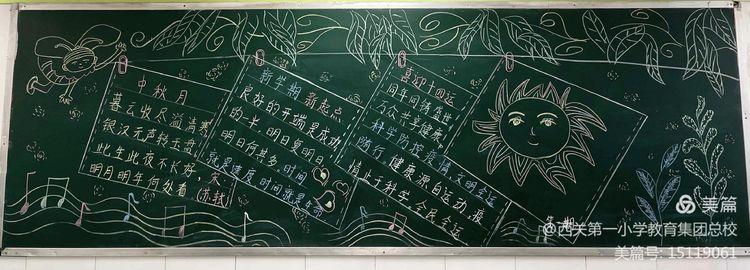 中秋月
暮云收尽溢清寒
银汉无声转玉盘
此生此夜不长好,
明月明年何处看
(苏轼)
新学期 新起点
良好的开端是成功
的一半,明日复明日,
明日何其多,时间
就是速度,时间就是生命
喜迎十四运
同年同练盛世
万众共享健康
科学防控疫情,文明全运
随行,健康源自运动,疫
情止于科学,全民全运
美篇
@西关第一小学教育集团总校
美篇号: 15119061